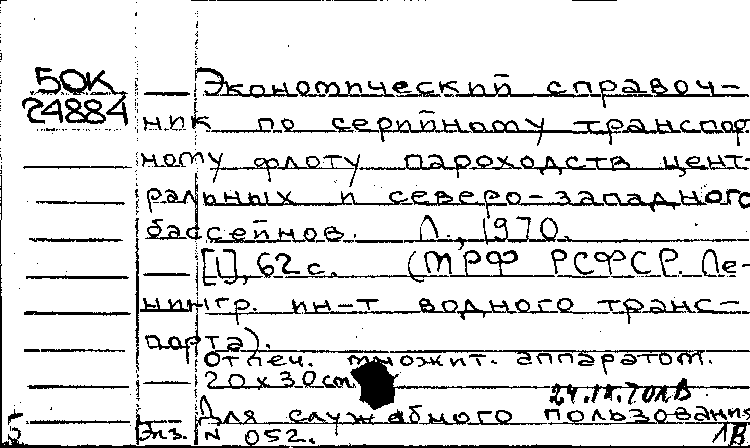 50К
24884
— Экономический справоч-
ник по серийному транспор
ному флоту пароходств цент-
ральных и северо-западного
бассейнов. Л., 1970.
— [1], 62 с. (МРФ РСФСР. Ле-
нингр. ин-т водного транс-
порта).
Отпеч. множит. аппаратом.
— 20 х 30 cm
24.IX.70
Для служебного пользования
Экз. N 052.
5
1В